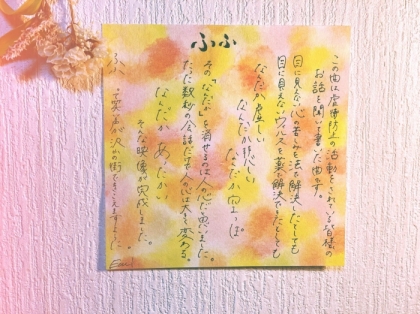 ふふ
この曲は虐待防止の活動をされている皆様の
お話を聞いて書いた曲です。
目に見えない心の苦しみを法で解決したとしても
目に見えないウイルスを薬で解決できたとしても
なんだか虚しい
なんだか淋しい
なんだか空っぽ
その「なんだか」を消せるのは人の心だと思いました。
ただ数秒の会話だけで人の心は大きく変わる。
なんだか あたたかい
そんな映像が完成しました。
ふふ って笑い声が沢山の街できこえますように